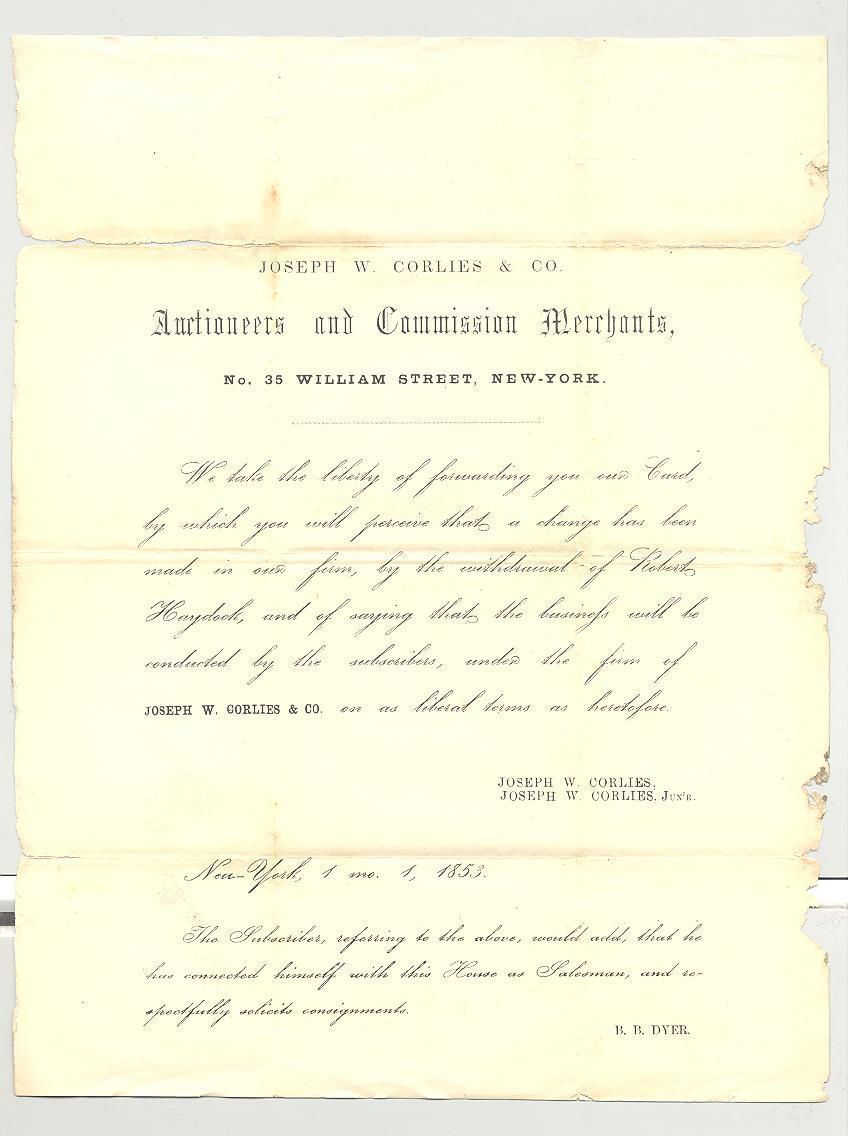 JOSEPH W. CORLIES & CO.
Auctioneers and Commission Merchants,
No. 35 WILLIAM STREET, NEW-YORK.
We take the liberty of forwarding you our Card,
by which you will perceive that a change has been
made in our firm, by the withdrawal of Robert
Haydock, and of saying that the business will be
conducted by the subscribers, under the firm of
JOSEPH W. CORLIES & CO. on as liberal terms as heretofore.
JOSEPH W. CORLIES,
JOSEPH W. CORLIES, JUN'R.
New-York, 1 mo. 1, 1853.
The Subscriber, referring to the above, would add, that he
has connected himself with this House as Salesman, and re-
spectfully solicits consignments.
B. B. DYER.